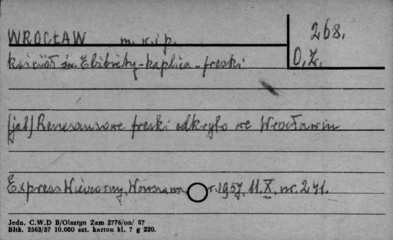 WROCŁAW m. w. i p. 268.
kościół św. Elżbiety - kaplica - freski O.Z.
(jat) Renesansowe freski odkryto we Wrocławiu
Express Wieczorny, Warszawa r. 1957, 11.X, nr. 241.
Jedn. C.W.D B/Olsztyn Zam 2776/on/ 67
Bltk. 2563/57 10.000 szt. karton kl. 7 g 220.